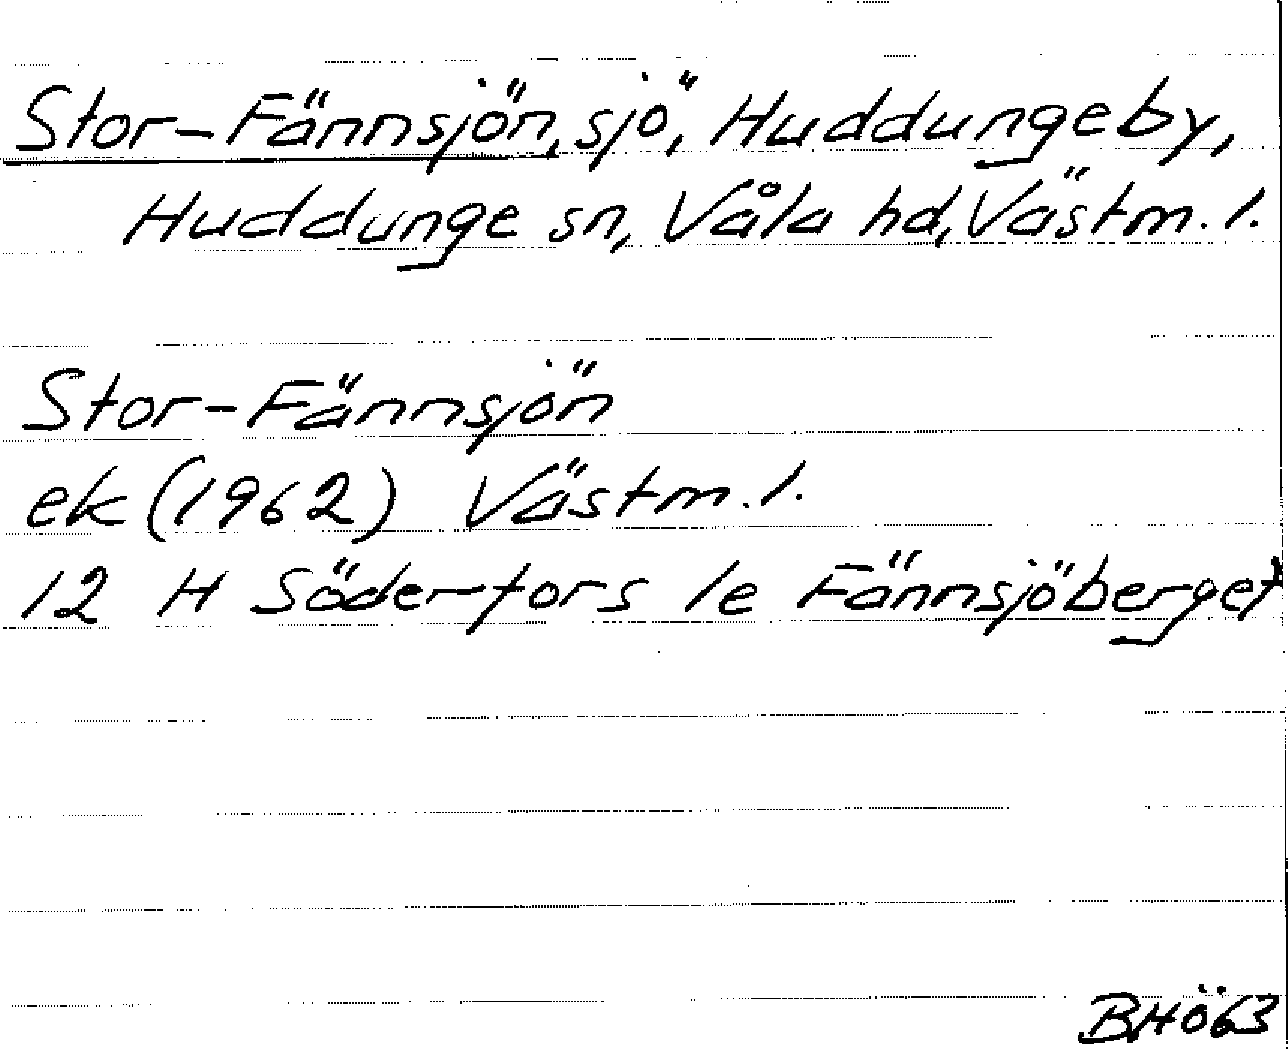 Stor-Fännsjön, sjö, Huddungeby,
Huddunge sn, Våla hd, Västm. l.
Stor-Fännsjön
ek (1962) Västm. l.
12 H Söderfors 1e Fännsjöberget
BHÖ63